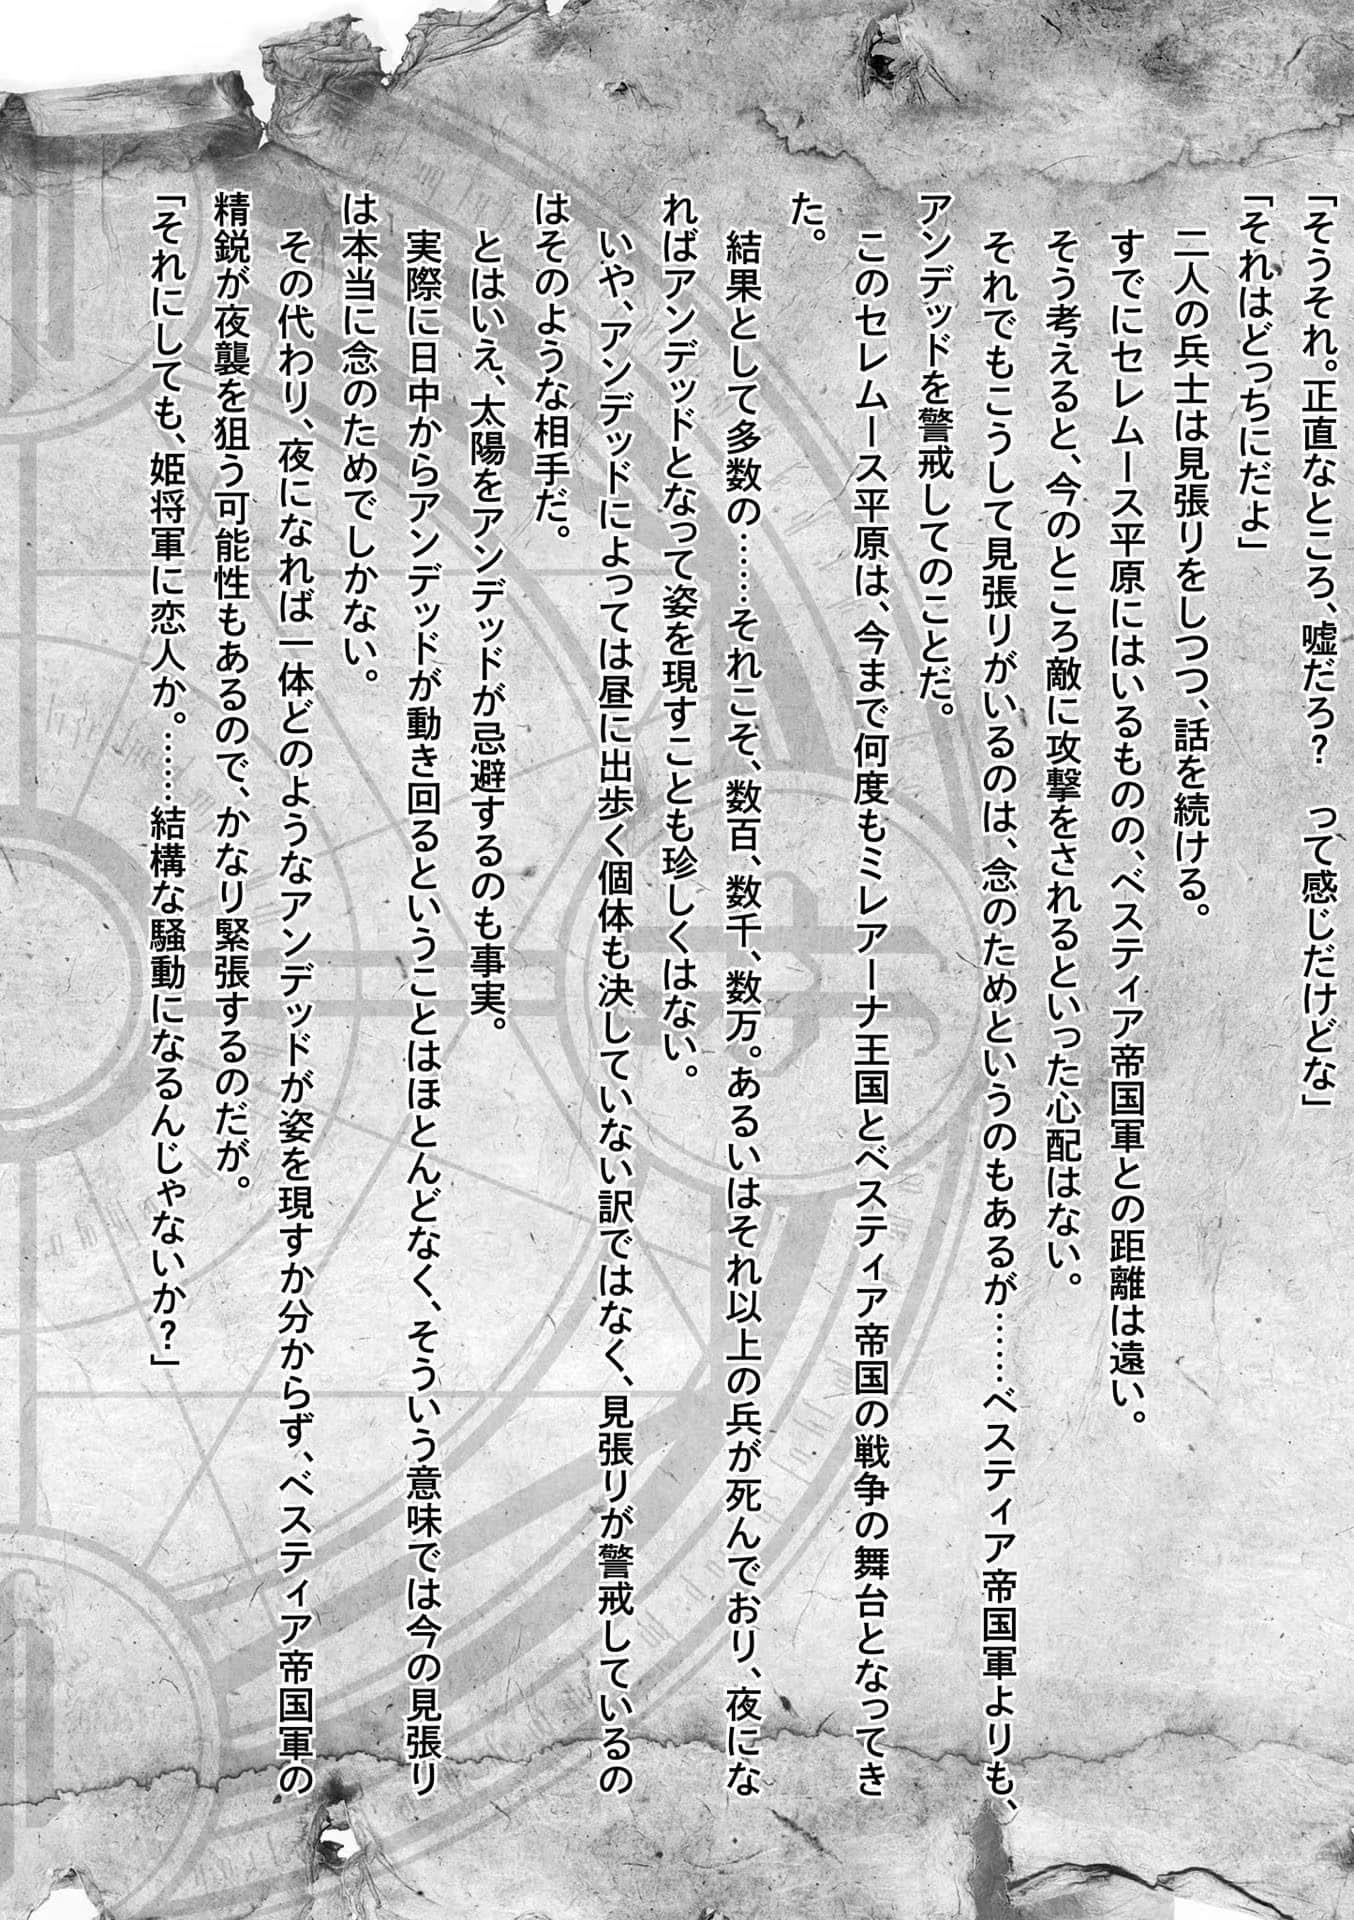 「そうそれ。正直なところ、嘘だろ？　って感じだけどな」
「それはどっちにだよ」
二人の兵士は見張りをしつつ、話を続ける。
すでにセレムース平原にはいるものの、ベスティア帝国軍との距離は遠い。
そう考えると、今のところ敵に攻撃をされるといった心配はない。
それでもこうして見張りがいるのは、念のためというのもあるが……ベスティア帝国軍よりも、
アンデッドを警戒してのことだ。
このセレムース平原は、今まで何度もミレアーナ王国とベスティア帝国の戦争の舞台となってき
た。
結果として多数の……それこそ、数百、数千、数万。あるいはそれ以上の兵が死んでおり、夜にな
ればアンデッドとなって姿を現すことも珍しくはない。
いや、アンデッドによっては昼に出歩く個体も決していない訳ではなく、見張りが警戒しているの
はそのような相手だ。
とはいえ、太陽をアンデッドが忌避するのも事実。
実際に日中からアンデッドが動き回るということはほとんどなく、そういう意味では今の見張り
は本当に念のためでしかない。
その代わり、夜になれば一体どのようなアンデッドが姿を現すか分からず、ベスティア帝国軍の
精鋭が夜襲を狙う可能性もあるので、かなり緊張するのだが。
「それにしても、姫将軍に恋人か。……結構な騒動になるんじゃないか？」